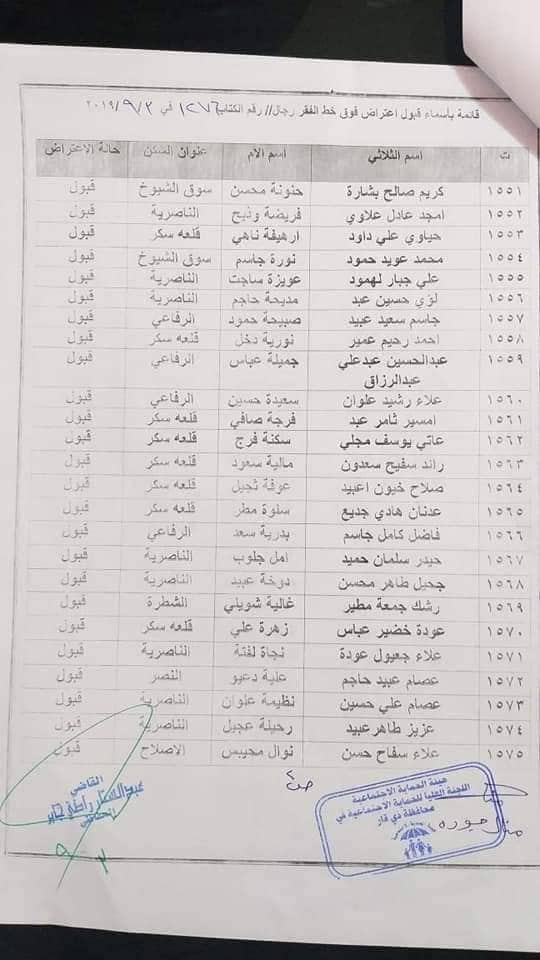 قائمة بأسماء قبول اعتراض فوق خط الفقر رجال// رقم الكتاب ١٢٧٦ في ٢٠١٩/٩/٢
ت اسم الثلاثي اسم الام عنوان السكن حالة الاعتراض
١٥٥١ كريم صالح بشارة حنونة محسن سوق الشيوخ قبول
١٥٥٢ امجد عادل علاوي فريضة وذيح الناصرية قبول
١٥٥٣ حياوي علي داود ارهيفة ناهي قلعه سكر قبول
١٥٥٤ محمد عويد حمود نورة جاسم سوق الشيوخ قبول
١٥٥٥ علي جبار لهمود عويزة ساجت الناصرية قبول
١٥٥٦ لؤي حسين عبد مديحة حاجم الناصرية قبول
١٥٥٧ جاسم سعيد عبيد صبيحة حمود الرفاعي قبول
١٥٥٨ احمد رحيم عمير نورية دخل قلعه سكر قبول
١٥٥٩ عبدالحسين عبدعلي جميلة عباس الرفاعي قبول
عبدالرزاق
١٥٦٠ علاء رشيد علوان سعيدة حسين الرفاعي قبول
١٥٦١ امسير ثامر عبد فرجة صافي قلعه سكر قبول
١٥٦٢ عاتي يوسف مجلي سكنة فرج قلعه سكر قبول
١٥٦٣ رائد سفيح سعدون مالية سعود قلعه سكر قبول
١٥٦٤ صلاح خيون اعبيد عوفة ثجيل قلعه سكر قبول
١٥٦٥ عدنان هادي جديع سلوة مطر قلعه سكر قبول
١٥٦٦ فاضل كامل جاسم بدرية سعد الرفاعي قبول
١٥٦٧ حيدر سلمان حميد امل جلوب الناصرية قبول
١٥٦٨ جحيل طاهر محسن دوخة عبيد الناصرية قبول
١٥٦٩ رشك جمعة مطير غالية شويلي الشطرة قبول
١٥٧٠ عودة خضير عباس زهرة علي قلعه سكر قبول
١٥٧١ علاء جعيول عودة نجاة لفتة الناصرية قبول
١٥٧٢ عصام عبيد حاجم علية دعيو النصر قبول
١٥٧٣ عصام علي حسين نظيمة علوان الناصرية قبول
١٥٧٤ عزيز طاهر عبيد رحيلة عجيل الناصرية قبول
١٥٧٥ علاء سفاح حسن نوال محيبس الاصلاح قبول
هيئة الحماية الاجتماعية
اللجنة العليا للحماية الاجتماعية في
محافظة ذي قار
القاضي
٩/٢